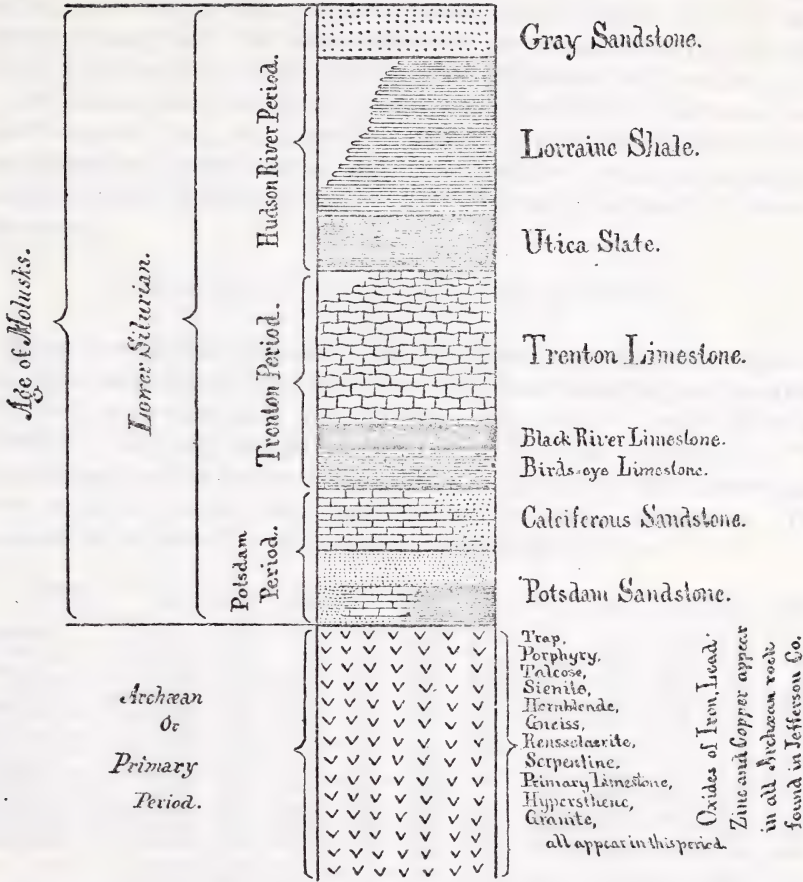 Age of Molusks.
Lower Silurian.
Hudson River Period.
Trenton Period.
Potsdam
Period.
Gray Sandstone.
Lorraine Shale.
Utica Slate.
Trenton Limestone.
Black River Limestone.
Birds-eye Limestone.
Calciferous Sandstone.
Potsdam Sandstone.
Archæan
Or
Primary
Period.
Trap,
Porphyry,
Talcose,
Sienite,
Hornblende,
Gneiss,
Rensselaerite,
Serpentine,
Primary Limestone,
Hypersthene,
Granite,
all appear in this period.
Oxides of Iron, Lead.
Zinc and Copper appear
in all Archæan rock
found in Jefferson Co.